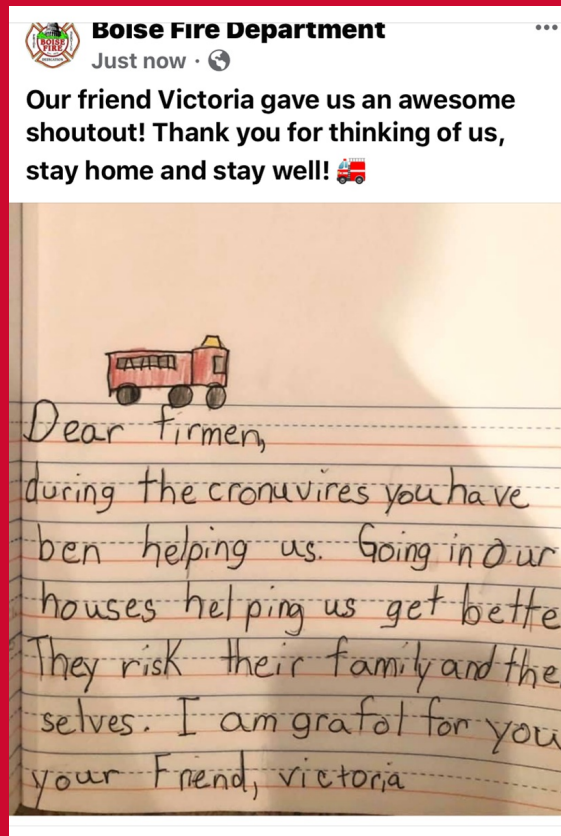 Boise Fire Department
BOISE
FIRE
Just now ·
Our friend Victoria gave us an awesome
shoutout! Thank you for thinking of us,
stay home and stay well! 🚒
Dear firmen,
during the cronuvires you have
ben helping us. Going in our
houses helping us get bette
They risk their family and the
selves. I am grafol for you
your Friend, victoria